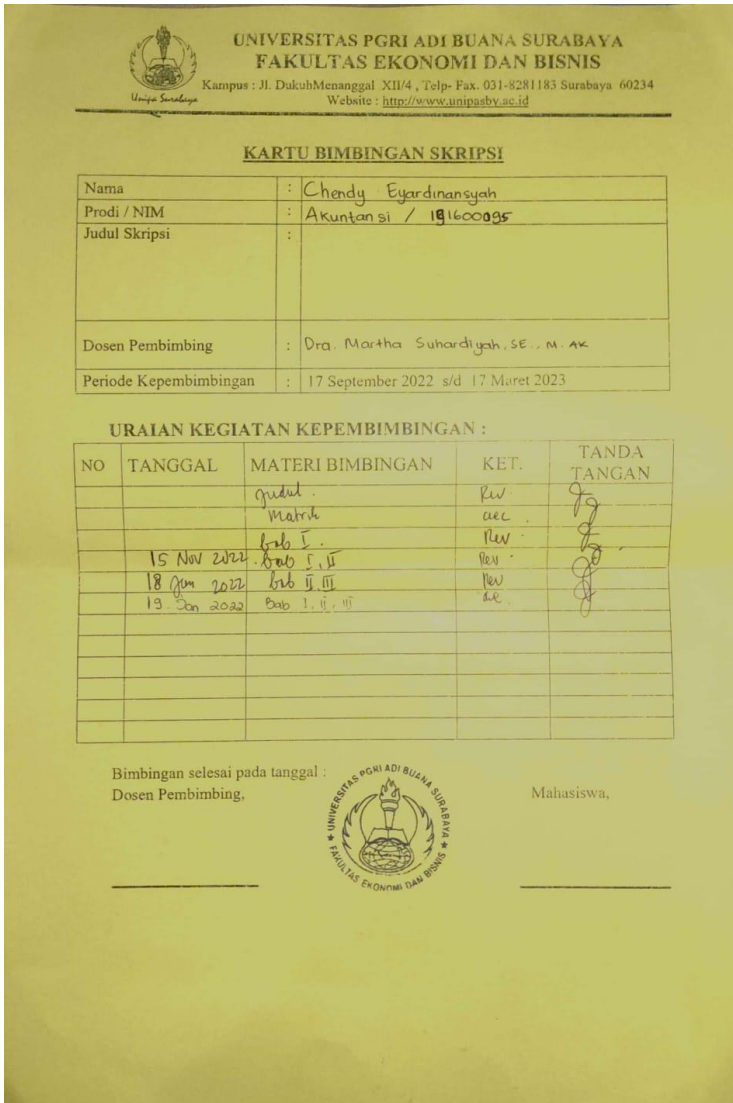 UNIVERSITAS PGRI ADI BUANA SURABAYA
FAKULTAS EKONOMI DAN BISNIS
Kampus : Jl. DukuhMenanggal XII/4 , Telp- Fax. 031-8281183 Surabaya 60234
Website : http://www.unipasby.ac.id
Unipa Surabaya
KARTU BIMBINGAN SKRIPSI
Nama : Chendy Eyardinansyah
Prodi / NIM : Akuntansi / 191600095
Judul Skripsi :
Dosen Pembimbing : Dra. Martha Suhardiyah, SE., M. AK
Periode Kepembimbingan : 17 September 2022 s/d 17 Maret 2023
URAIAN KEGIATAN KEPEMBIMBINGAN :
NO TANGGAL MATERI BIMBINGAN KET. TANDA TANGAN
Judul. Rev.
Matrik acc.
bab I. Rev.
15 Nov 2022. bab I, II Rev.
18 Jan 2022 bab II, III Rev
19. Jan 2022 Bab I, II, III
Bimbingan selesai pada tanggal :
Dosen Pembimbing, Mahasiswa,
UNIVERSITAS PGRI ADI BUANA SURABAYA
FAKULTAS EKONOMI DAN BISNIS